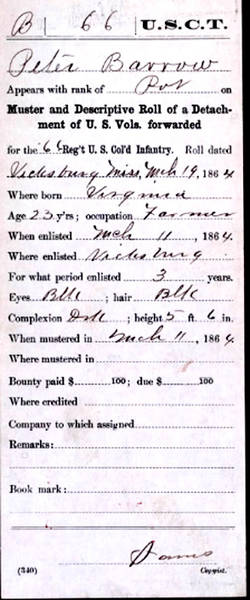 B | 66 | U.S.C.T.
Peter Barrow
Appears with rank of Pvt on
Muster and Descriptive Roll of a Detach-
ment of U. S. Vols. forwarded
for the 66 Reg't U. S. Col'd Infantry. Roll dated
Vicksburg Miss, Mch 19, 1864.
Where born Virginia
Age 23 y'rs; occupation Farmer
When enlisted Mch 11, 1864.
Where enlisted Vicksburg.
For what period enlisted 3 years.
Eyes Blk; hair Blk
Complexion Drk; height 5 ft. 6 in.
When mustered in Mch 11, 1864
Where mustered in
Bounty paid $ 100; due $ 100
Where credited
Company to which assigned
Remarks:
Book mark:
(340) Copyist.